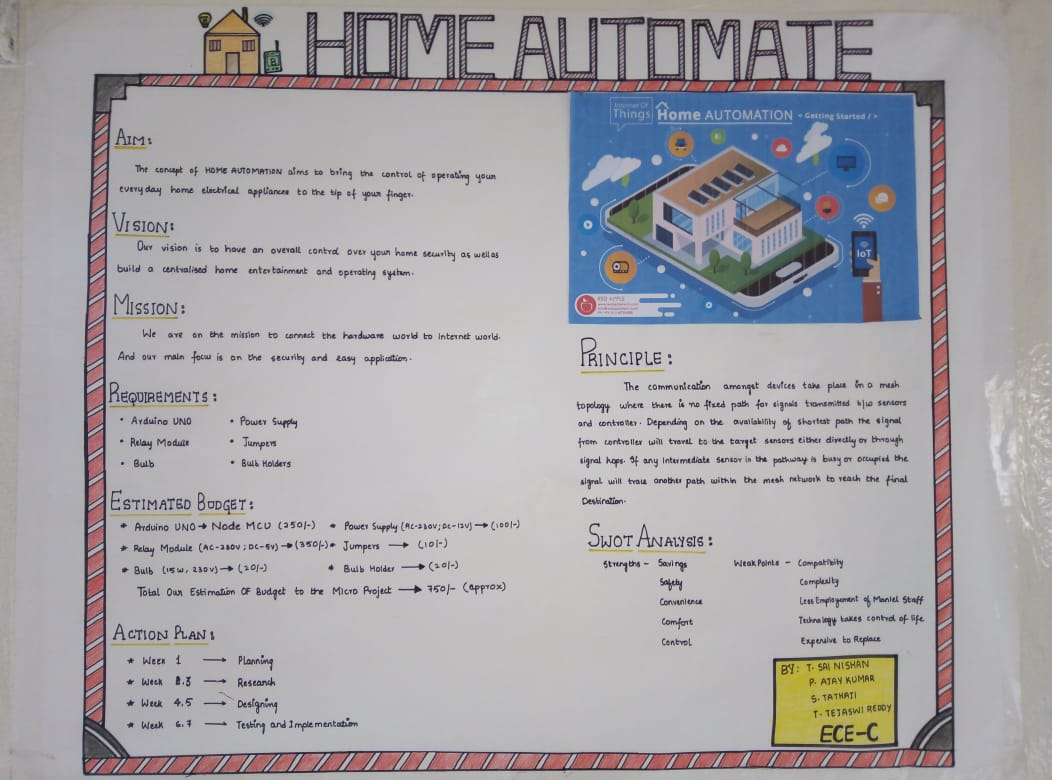 HOME AUTOMATE
AIM:
The concept of HOME AUTOMATION aims to bring the control of operating your
everyday home electrical appliances to the tip of your finger.
VISION:
Our vision is to have an overall control over your home security as well as
build a centralised home entertainment and operating system.
MISSION:
We are on the mission to connect the hardware world to internet world.
And our main focus is on the security and easy application.
REQUIREMENTS:
• Arduino UNO • Power Supply
• Relay Module • Jumpers
• Bulb • Bulb Holders
ESTIMATED BUDGET:
* Arduino UNO → Node MCU (250/-) * Power Supply (AC-230V; DC-12V) → (100/-)
* Relay Module (AC-230V; DC-5V) → (350/-) * Jumpers → (10/-)
* Bulb (15W, 230V) → (20/-) * Bulb Holder → (20/-)
Total Our Estimation OF Budget to the Micro Project → 750/- (approx)
ACTION PLAN:
* Week 1 → Planning
* Week 2.3 → Research
* Week 4.5 → Designing
* Week 6.7 → Testing and Implementation
Internet Of
Things Home AUTOMATION < Getting Started / >
IoT
RED APPLE
PRINCIPLE:
The communication amongst devices take place in a mesh
topology where there is no fixed path for signals transmitted b/w sensors
and controller. Depending on the availability of shortest path the signal
from controller will travel to the target sensors either directly or through
signal hops. If any intermediate sensor in the pathway is busy or occupied the
signal will trace another path within the mesh network to reach the final
Destination.
SWOT ANALYSIS:
Strengths - Savings Weak Points - Compatibility
Safety Complexity
Convenience Less Employement of Maniel Staff
Comfort Technology takes control of life
Control Expensive to Replace
BY: T. SAI NISHAN
P. AJAY KUMAR
S. TATHAJI
T. TEJASWI REDDY
ECE-C